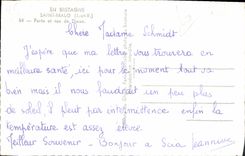 EN BRETAGNE
SAINT-MALO
Porte et rue de Dinan
Chère Madame Schmidt
J'espère que ma lettre vous trouvera en
meilleure santé, ici pour le moment tout va
bien mais il nous faudrait un peu plus
de soleil, il peut par intermittence enfin la
température est assez élevée.
Meilleur Souvenir - Bonjour à
Jeannine